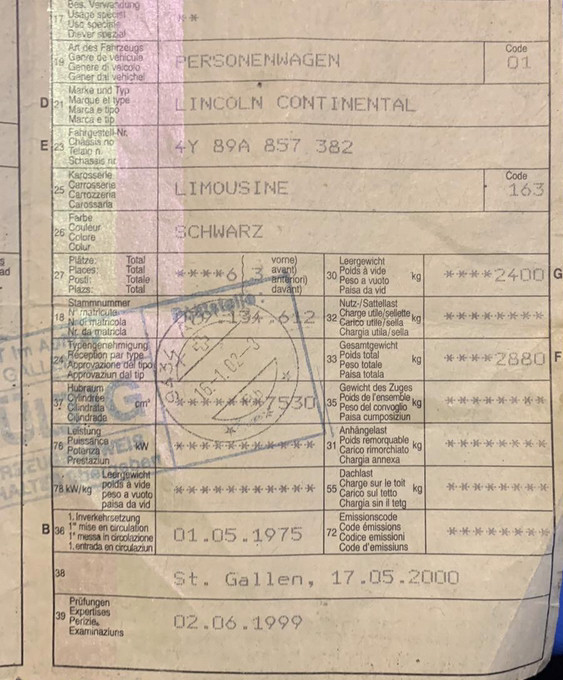 Bes. Verwendung
17 Usage spécial
Uso speciale
Diever spezial
**
Art des Fahrzeugs
19 Genre de véhicule
Genere di veicolo
Gener dal vehichel
PERSONENWAGEN
Code
01
Marke und Typ
D 21 Marque et type
Marca e tipo
Marca e tip
LINCOLN CONTINENTAL
Fahrgestell-Nr.
E 23 Châssis no
Telaio n.
Schassis nr.
4Y 89A 857 382
Karosserie
25 Carrosserie
Carrozzeria
Carossaria
LIMOUSINE
Code
163
Farbe
26 Couleur
Colore
Colur
SCHWARZ
Plätze: Total
27 Places: Total
Posti: Totale
Plazs: Total
****6 ( 3
vorne)
avant)
anteriori)
davant)
Leergewicht
30 Poids à vide kg
Peso a vuoto
Paisa da vid
****2400 G
Stammnummer
18 N° matricule
N. di matricola
Nr. da matricla
134.612
Nutz-/Sattellast
32 Charge utile/sellette kg
Carico utile/sella
Chargia utila/sella
********
Typengenehmigung
24 Réception par type
Approvazione del tipo
Approvaziun dal tip
Gesamtgewicht
33 Poids total kg
Peso totale
Paisa totala
****2880 F
Hubraum
37 Cylindrée cm³
Cilindrata
Cilindrada
7530
Gewicht des Zuges
35 Poids de l'ensemble kg
Peso del convoglio
Paisa cumposiziun
********
Leistung
76 Puissance kW
Potenza
Prestaziun
Anhängelast
31 Poids remorquable kg
Carico rimorchiato
Chargia annexa
********
Leergewicht
78 kW/kg poids à vide
peso a vuoto
paisa da vid
Dachlast
55 Charge sur le toit kg
Carico sul tetto
Chargia sin il tetg
********
1. Inverkehrsetzung
B 36 1re mise en circulation
1a messa in circolazione
1. entrada en circulaziun
01.05.1975
Emissionscode
72 Code émissions
Codice emissioni
Code d'emissiuns
********
38
St. Gallen, 17.05.2000
Prüfungen
39 Expertises
Perizie
Examinaziuns
02.06.1999